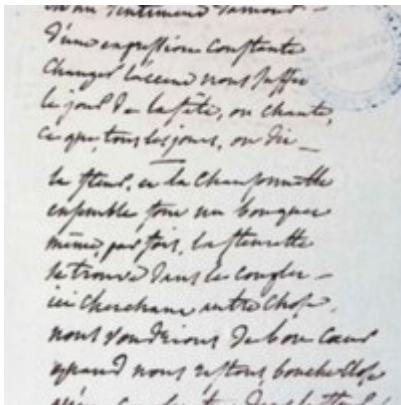 un sentiment d'amour –
d'une expression constante
changer l'accent nous suffit
le jour de la fête, on chante,
ce que, tous les jours, on dit –
la fleur, et la chansonnette
ensemble font un bouquet
même, par fois, la fleurette
se trouve dans le couplet –
ici cherchant autre chose,
nous voudrions de bon cœur
quand nous restons bouche close